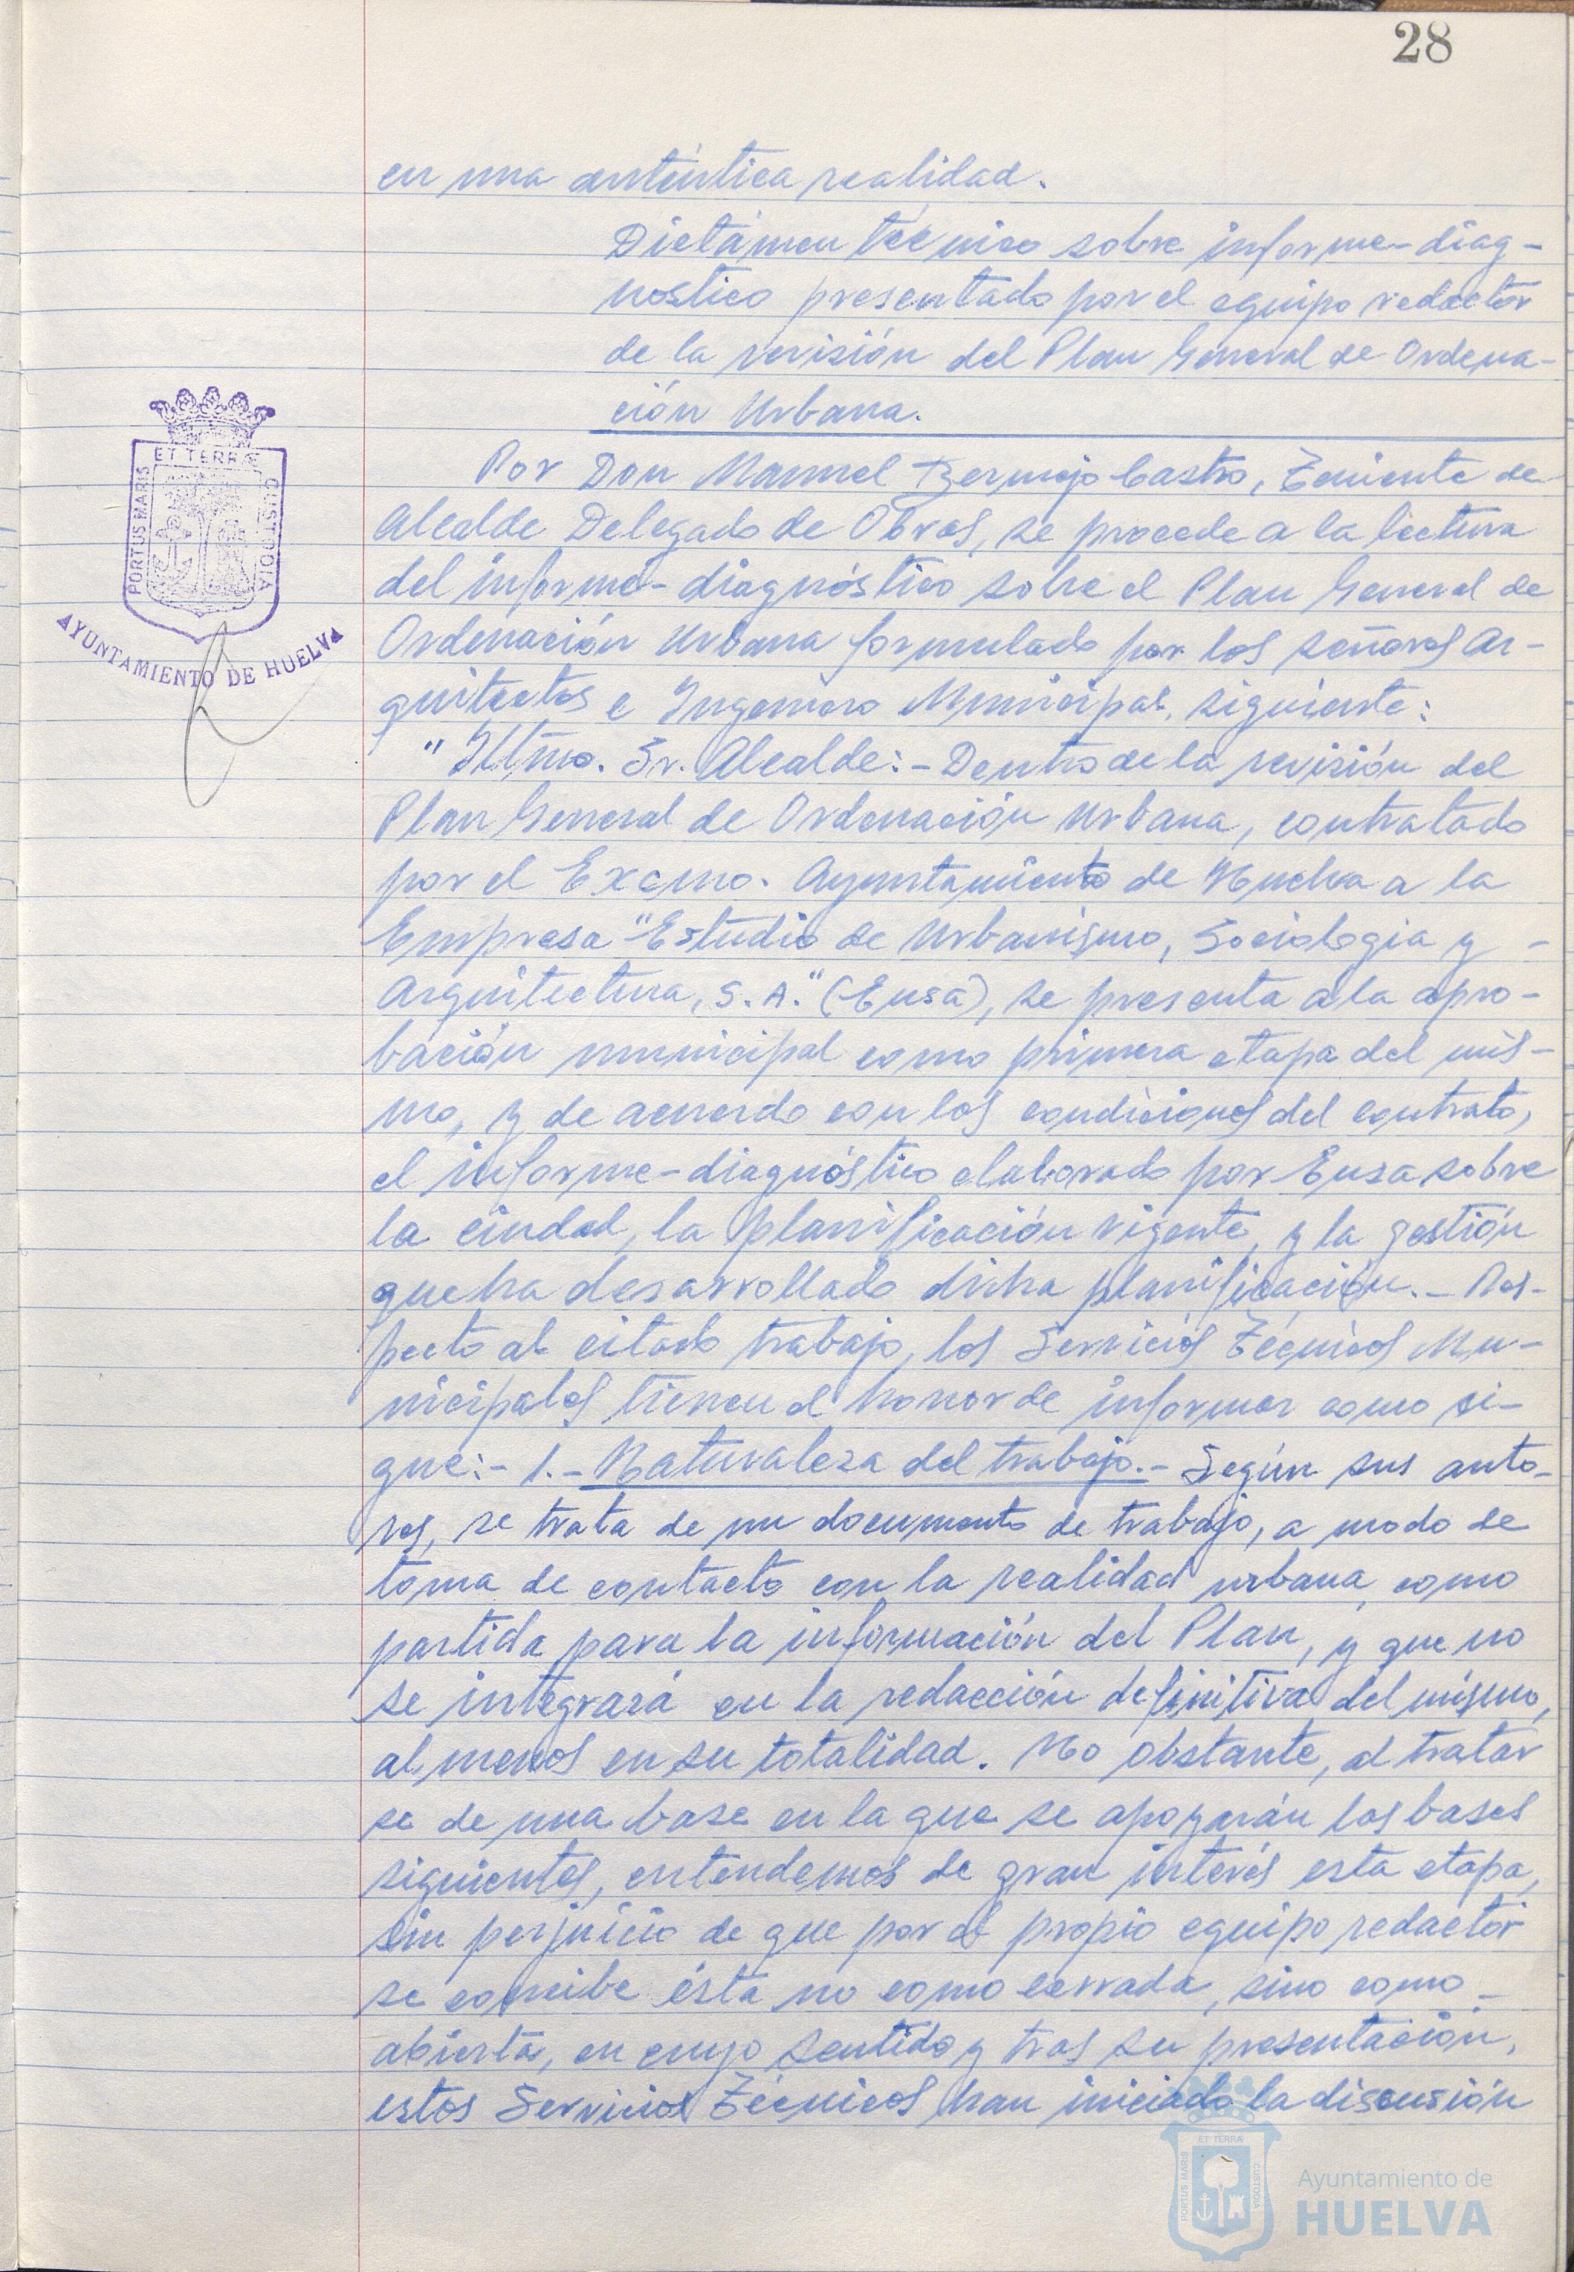 28
en una auténtica realidad.
Dictámen técnico sobre informe-diag-
nostico presentado por el equipo redactor
de la revisión del Plan General de Ordena-
ción Urbana.
Por Don Manuel Bermejo Castro, Teniente de
Alcalde Delegado de Obras, se procede a la lectura
del informe-diagnóstico sobre el Plan General de
Ordenación Urbana formulado por los señores Ar-
quitectos e Ingeniero Municipal, siguiente:
"Iltmo. Sr. Alcalde:- Dentro de la revisión del
Plan General de Ordenación Urbana, contratado
por el Excmo. Ayuntamiento de Huelva a la
Empresa "Estudio de Urbanismo, Sociologia y -
Arquitectura, S.A." (Eusa), se presenta a la apro-
bación municipal como primera etapa del mis-
mo, y de acuerdo con las condiciones del contrato,
el informe-diagnóstico elaborado por Eusa sobre
la ciudad, la planificación vigente, y la gestión
que ha desarrollado dicha planificación.- Res-
pecto al citado trabajo, los Servicios Técnicos Mu-
nicipales tienen el honor de informar como si-
gue:- 1.- Naturaleza del trabajo.- Según sus auto-
res, se trata de un documento de trabajo, a modo de
toma de contacto con la realidad urbana, como
partida para la información del Plan, y que no
se integrará en la redacción definitiva del mismo,
al menos en su totalidad. No obstante, al tratar
se de una base en la que se apoyarán las bases
siguientes, entendemos de gran interés esta etapa,
sin perjuicio de que por el propio equipo redactor
se concibe ésta no como cerrada, sino como -
abierta, en cuyo sentido y tras su presentación,
estos Servicios Técnicos han iniciado la discusión
PORTUS MARIS
ET TERRÆ
CUSTODIA
AYUNTAMIENTO DE HUELVA
PORTUS MARIS
ET TERRÆ
CUSTODIA
Ayuntamiento de
HUELVA